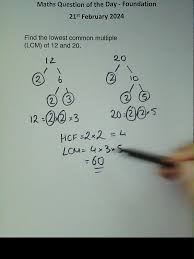 Maths Question of the Day - Foundation
21st February 2024
Find the lowest common multiple
(LCM) of 12 and 20.
12 20
2 6 2 10
2 3 2 5
12 = 2 × 2 × 3 20 = 2 × 2 × 5
HCF = 2 × 2 = 4
LCM = 4 × 3 × 5
= 60